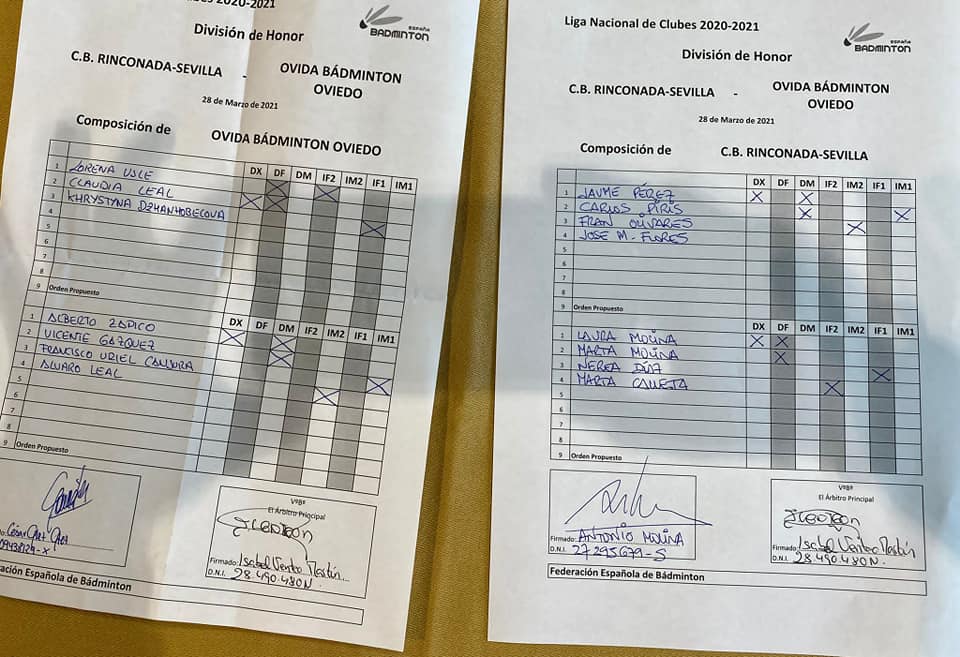 2020-2021
División de Honor
españa
BADMINTON
C.B. RINCONADA-SEVILLA - OVIDA BÁDMINTON
OVIEDO
28 de Marzo de 2021
Composición de OVIDA BÁDMINTON OVIEDO
DX DF DM IF2 IM2 IF1 IM1
1 LORENA USLE X X
2 CLAUDIA LEAL X X
3 KHRYSTYNA X
4
5
6
7
8
9 Orden Propuesto
DX DF DM IF2 IM2 IF1 IM1
1 ALBERTO ZAPICO X X
2 VICENTE GÁZQUEZ X
3 FRANCISCO URIEL X
4 ALVARO LEAL X
5
6
7
8
9 Orden Propuesto
CÉSAR
VºBº
El Árbitro Principal
Firmado: Isabel Ventro
D.N.I. 28.490.480N
Federación Española de Bádminton
Liga Nacional de Clubes 2020-2021
españa
BADMINTON
División de Honor
C.B. RINCONADA-SEVILLA - OVIDA BÁDMINTON
OVIEDO
28 de Marzo de 2021
Composición de C.B. RINCONADA-SEVILLA
DX DF DM IF2 IM2 IF1 IM1
1 JAUME PÉREZ X X
2 CARLOS PIRIS X X
3 FRAN OLIVARES X
4 JOSE M. FLORES
5
6
7
8
9 Orden Propuesto
DX DF DM IF2 IM2 IF1 IM1
1 LAURA MOLINA X X
2 MARTA MOLINA X
3 NEREA DÍAZ X
4 MARTA CALLEJA X
5
6
7
8
9 Orden Propuesto
Firmado: ANTONIO MOLINA
D.N.I. 27295679-S
VºBº
El Árbitro Principal
Firmado: Isabel Ventro
D.N.I. 28.490.480N
Federación Española de Bádminton